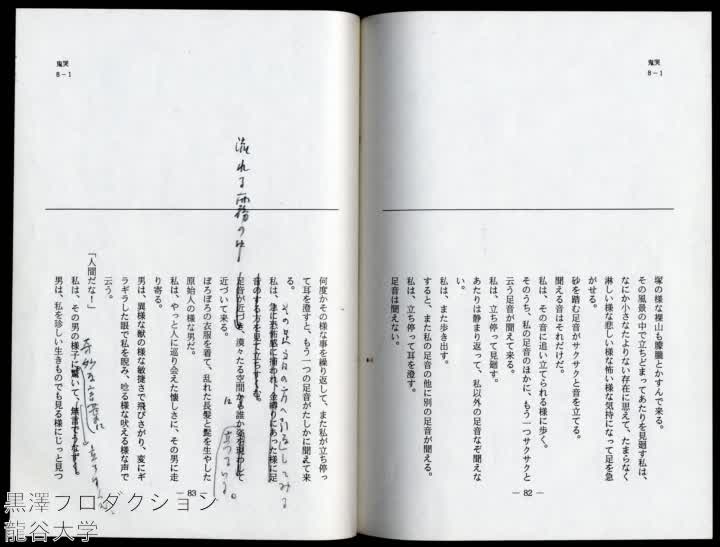 鬼哭
8-1
塚の様な裸山も朦朧とかすんで来る。
その風景の中で立ちどまってあたりを見廻す私は、
なにか小さなたよりない存在に思えて、たまらなく
淋しい様な悲しい様な怖い様な気持になって足を急
がせる。
砂を踏む足音がサクサクと音を立てる。
聞える音はそれだけだ。
私は、その音に追い立てられる様に歩く。
そのうち、私の足音のほかに、もう一つサクサクと
云う足音が聞えて来る。
私は、立ち停って見廻す。
あたりは静まり返って、私以外の足音なぞ聞えな
い。
私は、また歩き出す。
すると、また私の足音の他に別の足音が聞える。
私は、立ち停って耳を澄す。
足音は聞えない。
— 82 —
鬼哭
8-1
何度かその様な事を繰り返して、また私が立ち停っ
て耳を澄すと、もう一つの足音がたしかに聞えて来
る。
その足音の方へ
私は、急に恐怖感に捕われ、金縛りにあった様に足
音のする方を見て立ちすくむ。
流れる霧の中
足音が近づき、漠々たる空間から誰かが現われて
近づいて来る。
ぼろぼろの衣服を着て、乱れた長髪と髭を生やした
原始人の様な男だ。
私は、やっと人に巡り会えた懐しさに、その男に走
り寄る。
男は、異様な獣の様な敏捷さで飛びさがり、変にギ
ラギラした眼で私を睨み、唸る様な吠える様な声で
云う。
「人間だな！」
私は、その男の様子に驚いて、無言でうなずく。
男は、私を珍しい生きものでも見る様にじっと見つ
— 83 —
黒澤プロダクション
龍谷大学